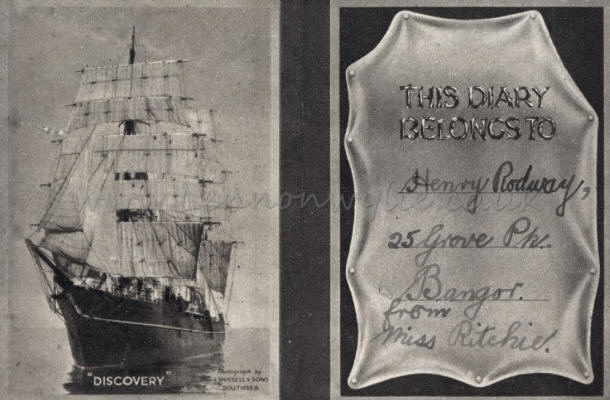 "DISCOVERY"
Photograph by
RUSSELL & SONS
SOUTHSEA
THIS DIARY
BELONGS TO
Henry Rodway,
25 Grove Pk.
Bangor.
from
Miss Ritchie.
www.lennonwylie.co.uk